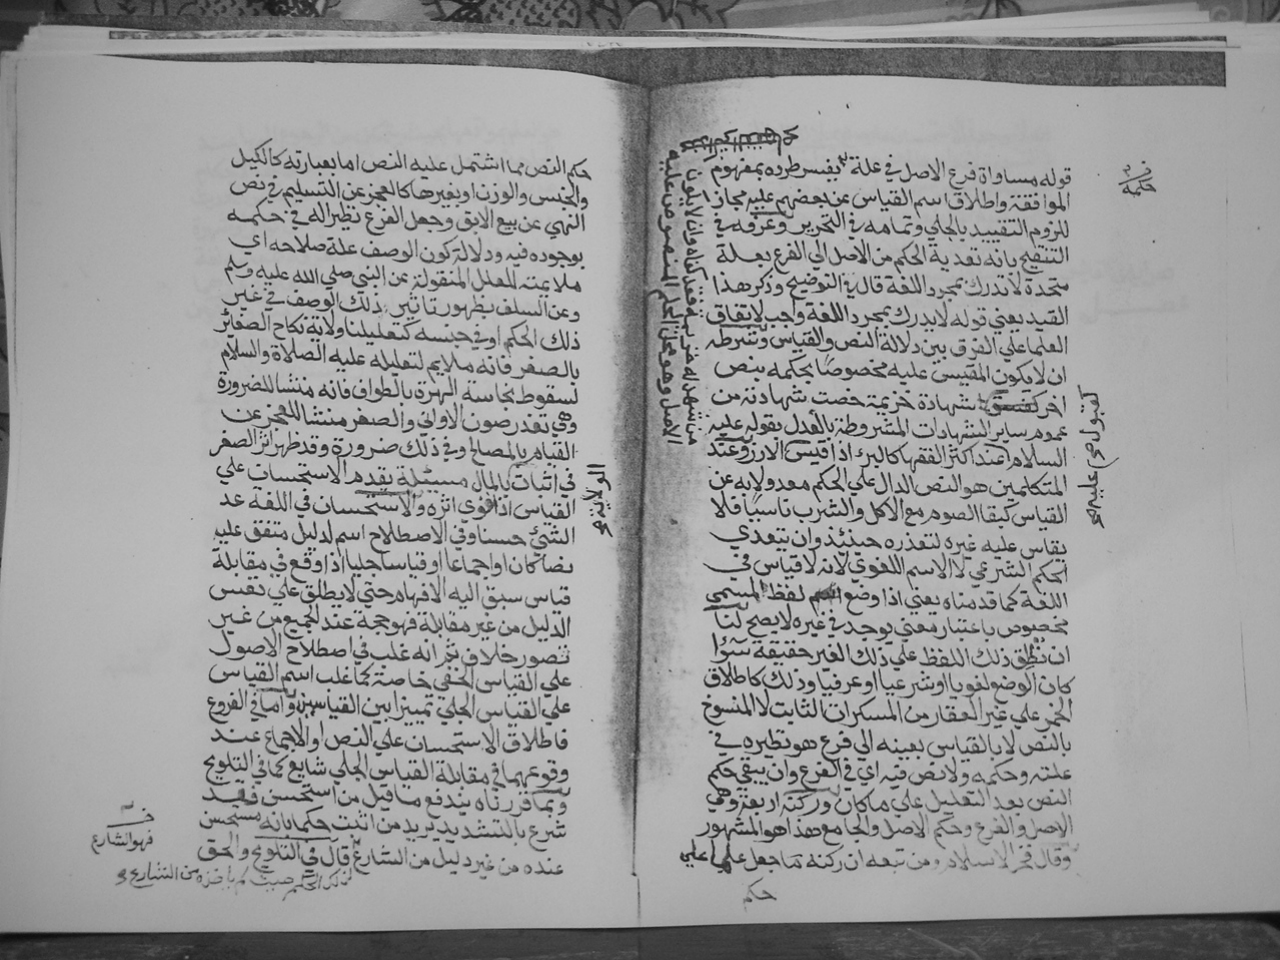 قوله مساواة فرع الاصل في علة حكمه يفسر طرده بمفهوم
الموافقة واطلاق اسم القياس عن بعضهم عليه مجاز
للزوم التقييد بالجلي وتمامه في التحرير وعرفه في
التنقيح بانه تعدية الحكم من الاصل الي الفرع بعلة
متحدة لا تدرك بمجرد اللغة قال في التوضيح وذكر هذا
القيد يعني قوله لا يدرك بمجرد اللغة واجب لاتفاق
العلما علي الفرق بين دلالة النص والقياس وشرطه
ان لا يكون المقيس عليه مخصوصا بحكمه بنص
اخر شهادة خزيمة خصت شهادته من
عموم ساير الشهادات المشروطة بالعدل بقوله عليه
السلام عند اكثر الفقها كالبر اذا قيس الارز وعند
المتكلمين هو النص الدال علي الحكم معدولا به عن
القياس كبقا الصوم مع الاكل والشرب ناسيا فلا
يقاس عليه غيره لتعذره حينئذ وان يتعدي
الحكم الشرعي لا الاسم اللغوي لانه لا قياس في
اللغة كما قدمناه يعني اذا وضع لفظ لمسمي
مخصوص باعتبار معني يوجد في غيره لا يصح لنا
ان نطلق ذلك اللفظ علي ذلك الغير حقيقة سوا
كان الوضع لغويا او شرعيا او عرفيا وذلك كاطلاق
الخمر علي غير العقار من المسكرات الثابت لا المنسوخ
بالنص لا بالقياس بعينه الي فرع هو نظيره في
علته وحكمه ولا نص فيه اي في الفرع وان يبقي حكم
النص بعد التعليل علي ما كان وركنه اربعة وهي
الاصل والفرع وحكم الاصل والجامع هذا هو المشهور
وقال فخر الاسلام ومن تبعه ان ركنه ما جعل علما علي
حكم
حكمه
كقبول
حكم النص مما اشتمل عليه النص اما بعبارته كالكيل
والجنس والوزن او بغيرها كالعجز عن التسليم في نص
النهي عن بيع الابق وجعل الفرع نظيرا له في حكمه
بوجوده فيه ودلالة كون الوصف علة صلاحه اي
ملايمته للعلل المنقولة عن النبي صلي الله عليه وسلم
وعن السلف بظهور تاثير ذلك الوصف في غير
ذلك الحكم او في جنسه كتعليلنا ولاية نكاح الصغائر
بالصغر فانه ملايم لتعليله عليه الصلاة والسلام
لسقوط نجاسة الهرة بالطواف فانه منشا للضرورة
وهي تعذر صون الاواني والصغر منشا للعجز عن
القيام بالمصالح وفي ذلك ضرورة وقد ظهر اثر الصغر
في اثبات بالمال مسئلة يقدم الاستحسان علي
القياس اذا قوي اثره والاستحسان في اللغة عد
الشئ حسنا وفي الاصطلاح اسم لدليل متفق عليه
نصا كان او اجماعا او قياسا خفيا اذا وقع في مقابلة
قياس سبق اليه الافهام حتي لا يطلق علي نفس
الدليل من غير مقابلة فهو حجة عند الجميع من غير
تصور خلاف ثم انه غلب في اصطلاح الاصول
علي القياس الخفي خاصة كما غلب اسم القياس
علي القياس الجلي تمييزا بين القياسين واما في الفروع
فاطلاق الاستحسان علي النص او الاجماع عند
وقوعهما في مقابلة القياس الجلي شايع كما في التلويح
وبما قررناه يندفع ما قيل من استحسن فقد
شرع بالتشديد يريد من اثبت حكما بانه مستحسن
عنده من غير دليل من الشارع قال في التلويح والحق
الولاية
فهو الشارع
لذلك الحكم حيث لم ياخذه من الشارع